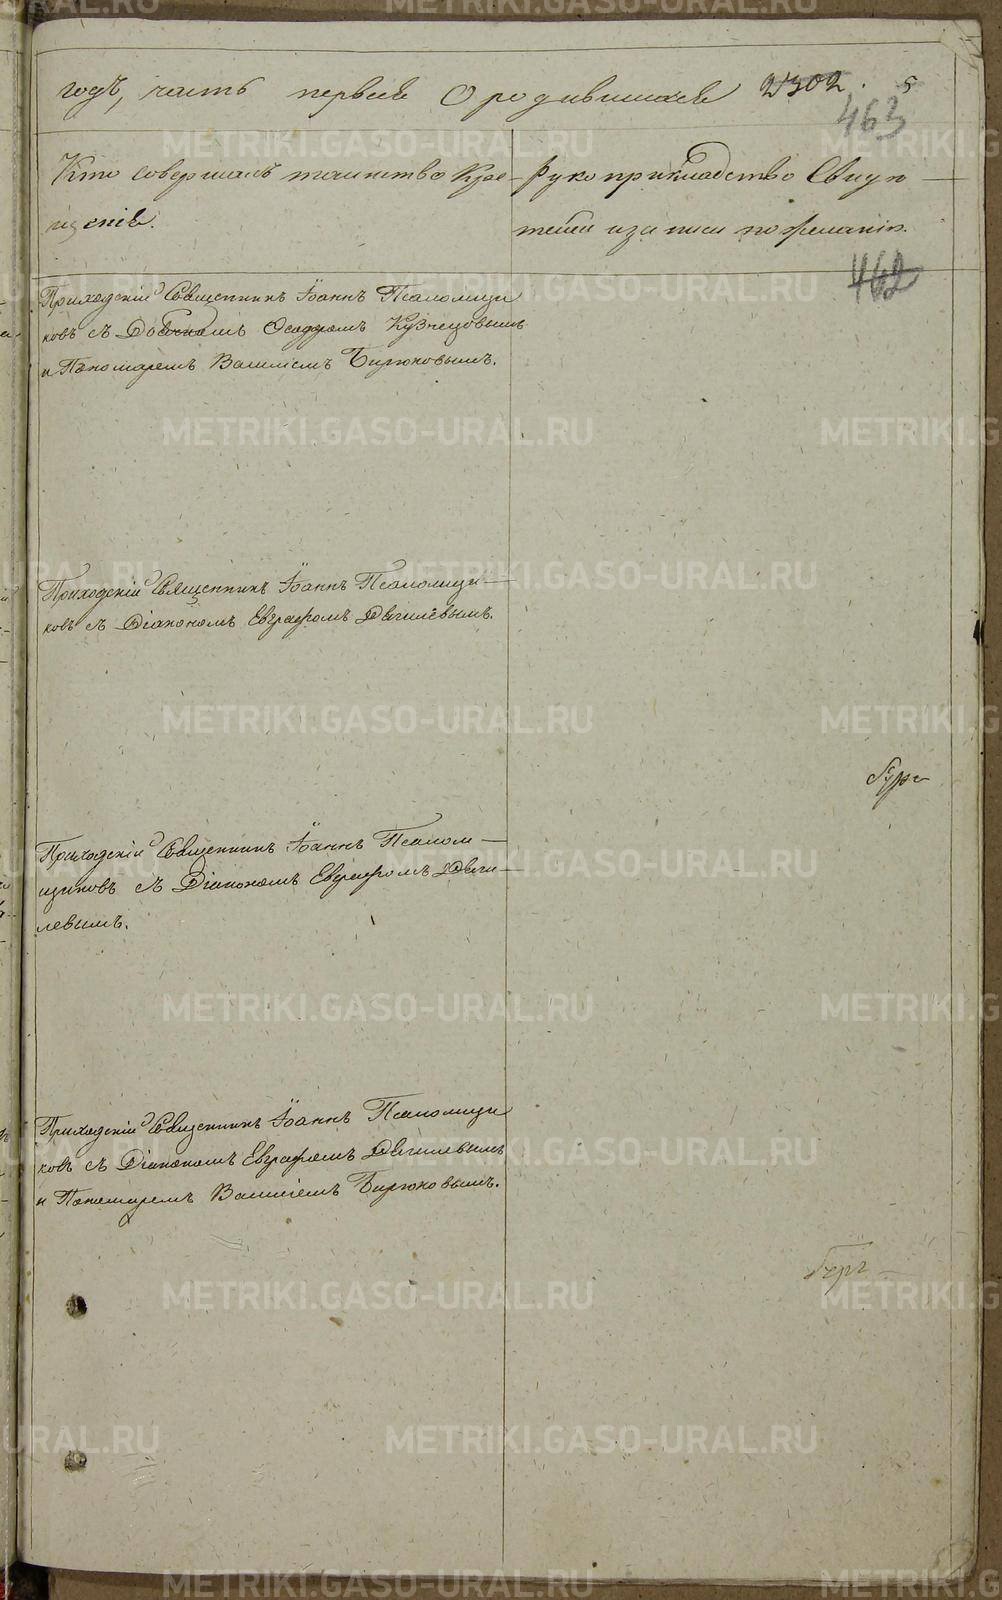 годъ, часть первая О родившихся 2302. 5
463
Кто совершалъ таинство Кре-
щенія.
Рукоприкладство Свидѣ
телей записи по желанію.
462
Приходскій Священникъ Іоаннъ Псаломщи
ковъ съ Кузнецовымъ
и Пономаремъ Василіемъ Бирюковымъ.
Приходскій Священникъ Іоаннъ Псаломщи-
ковъ съ Діакономъ Евграфомъ Двигилевымъ.
Приходскій Священникъ Іоаннъ Псалом-
щиковъ съ Діакономъ Евграфомъ Двиги-
левымъ.
Приходскій Священникъ Іоаннъ Псаломщи
ковъ съ Діакономъ Евграфомъ Двигилевымъ
и Пономаремъ Василіемъ Бирюковымъ.
METRIKI.GASO-URAL.RU